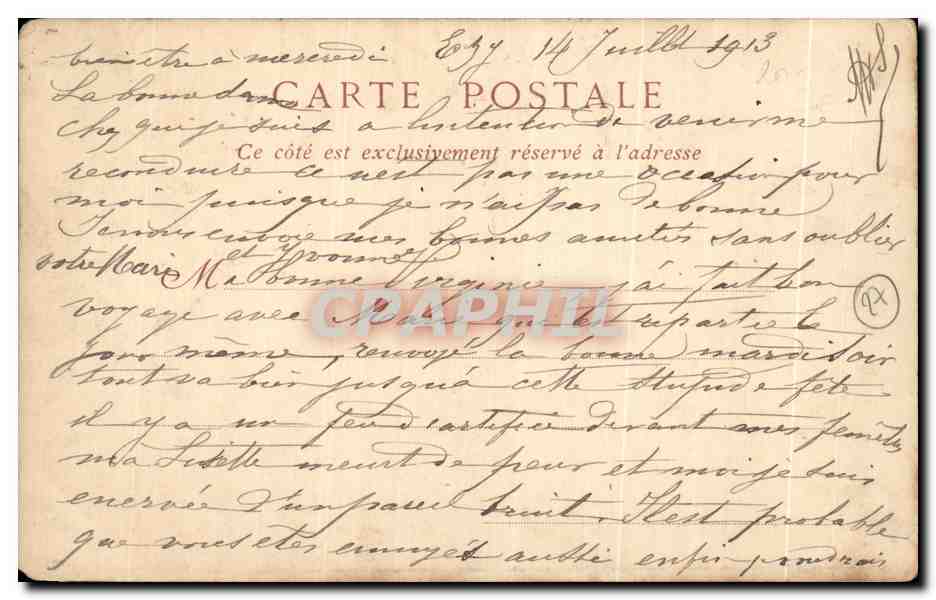 bien être à mercredi Ezy 14 Juillet 1913
La bonne dame CARTE POSTALE
chez qui je suis a l'intention de venir me
Ce côté est exclusivement réservé à l'adresse
reconduire ce n'est pas une occasion pour
moi puisque je n'ai pas de bonne
Je vous envoie mes bonnes amitiés sans oublier
votre Mari et Yvonne
Ma bonne Virginie j'ai fait bon
voyage avec qui est repartie le
jour même, renvoyé la bonne mardi soir
tout va bien jusqu'à cette stupide fête
il y a un feu d'artifice devant mes fenêtres
ma Lisette meurt de peur et moi je suis
enervée d'un pareil bruit. Il est probable
que vous etes ennuyés aussi enfin
CRAPHIL
27